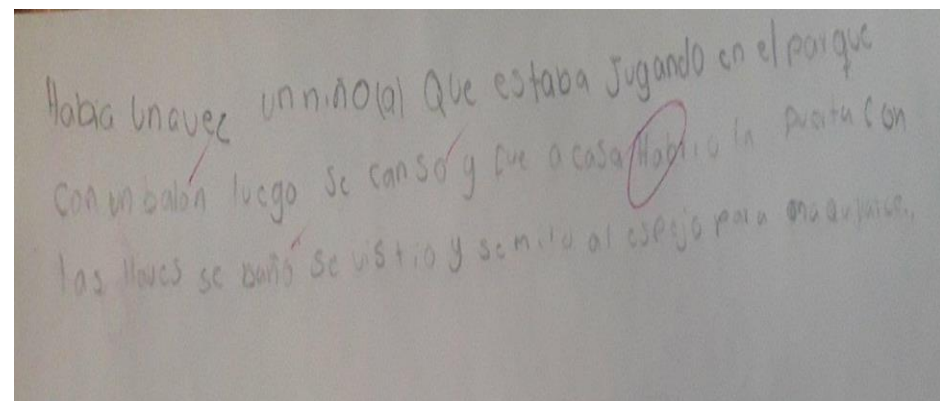 Habia unavez un niño(a) Que estaba Jugando en el parque
con un balón luego se cansó y fue a casa Habrio la puerta con
las llaves se bañó se vistio y se miro al espejo para maquularse.